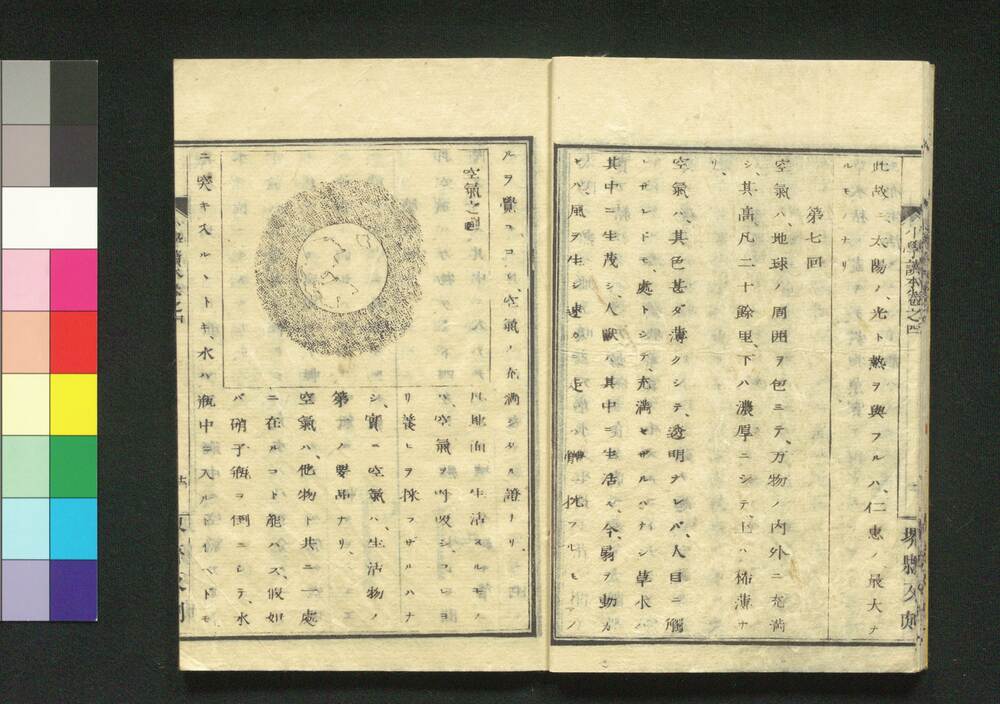 小學讀本卷之四
堺縣又刻
此故ニ、太陽ノ、光ト熱ヲ與フルハ、仁惠ノ最大ナ
ルモノナリ
第七回
空氣ハ、地球ノ周囲ヲ包ミテ、万物ノ内外ニ充満
シ、其高凡二十餘里、下ハ濃厚ニシテ、上ハ稀薄ナ
リ、
空氣ハ、其色甚ダ薄クシテ、透明ナレバ、人目ニ觸
レザレドモ、處トシテ、充満セザルハナシ、草木ハ
其中ニ生茂シ、人獸ハ其中ニ生活ス、今、扇ヲ動カ
セバ風ヲ生ジ
ルヲ覺ユコレ、空氣ノ充満シタル證ナリ、
空氣之圖
凡地面ニ生活スルモノ
ハ、空氣ヲ呼吸シ、コレニ由
リ養ヒヲ採ラザルハナ
シ、實ニ空氣ハ、生活物ノ
第一ノ要品ナリ、
空氣ハ、他物ト共ニ一處
ニ在ルコト能ハズ、假如
バ硝子瓶ヲ倒ニシテ、水
ニ突キ入ルヽトキ、水ハ瓶中ニ入ル